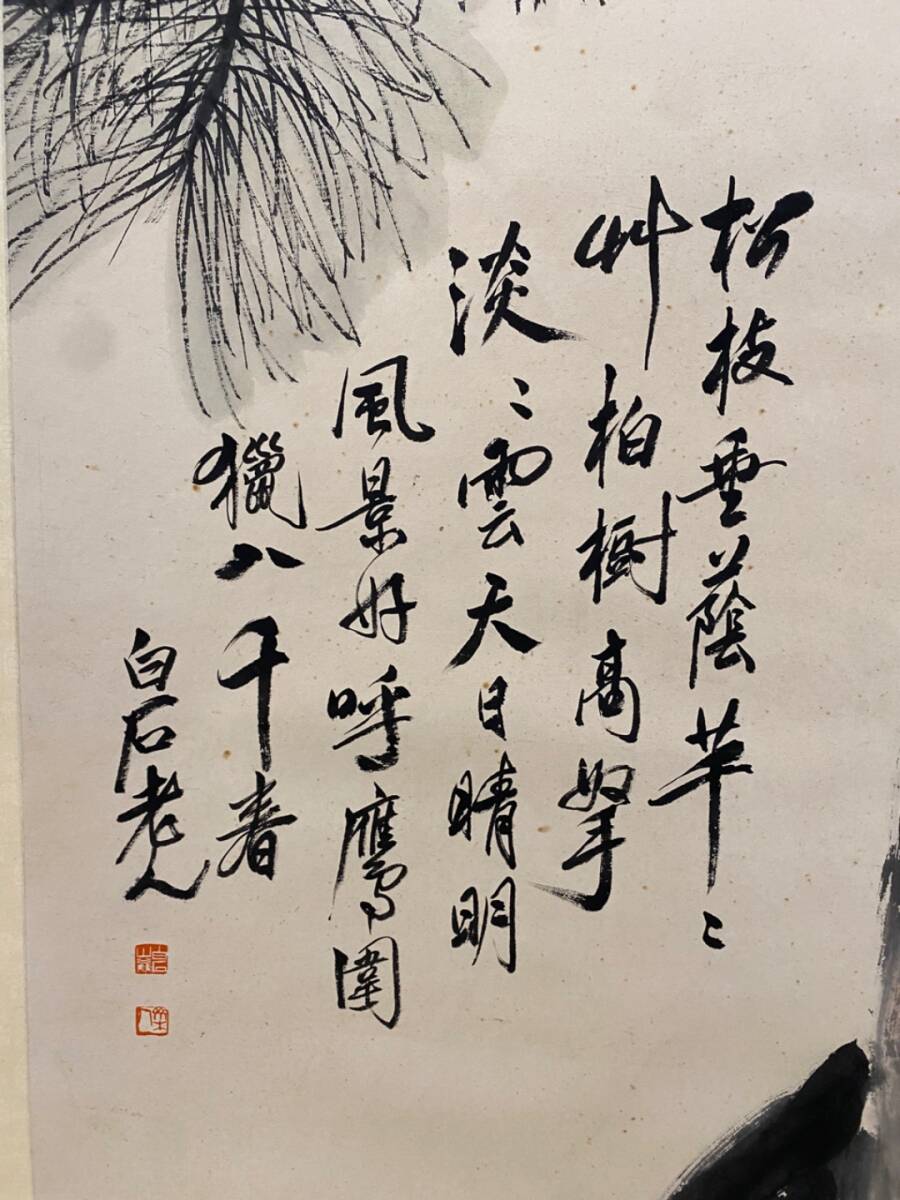 松枝垂蔭芊〻
艸柏樹高拏
淡〻雲天日晴明
風景好呼鷹圍
獵八千春
白石老人